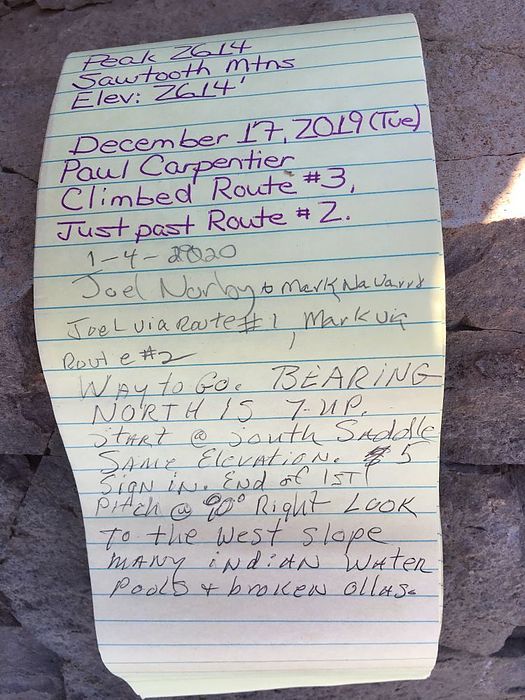 Peak 2614
Sawtooth Mtns
Elev: 2614'
December 17, 2019 (Tue)
Paul Carpentier
Climbed Route #3,
Just past Route #2.
1-4-2020
Joel Norby & Mark Navarro
Joel via Route #1, Mark via
Route #2
WAY to Go. BEARING
NORTH IS 7-UP.
START @ South Saddle
SAME ElevATION. 5
SIGN iN. END of 1ST
Pitch @ 90° Right LOOK
To the West slope
MANY iNdiAN WATER
Pools & broken ollas.